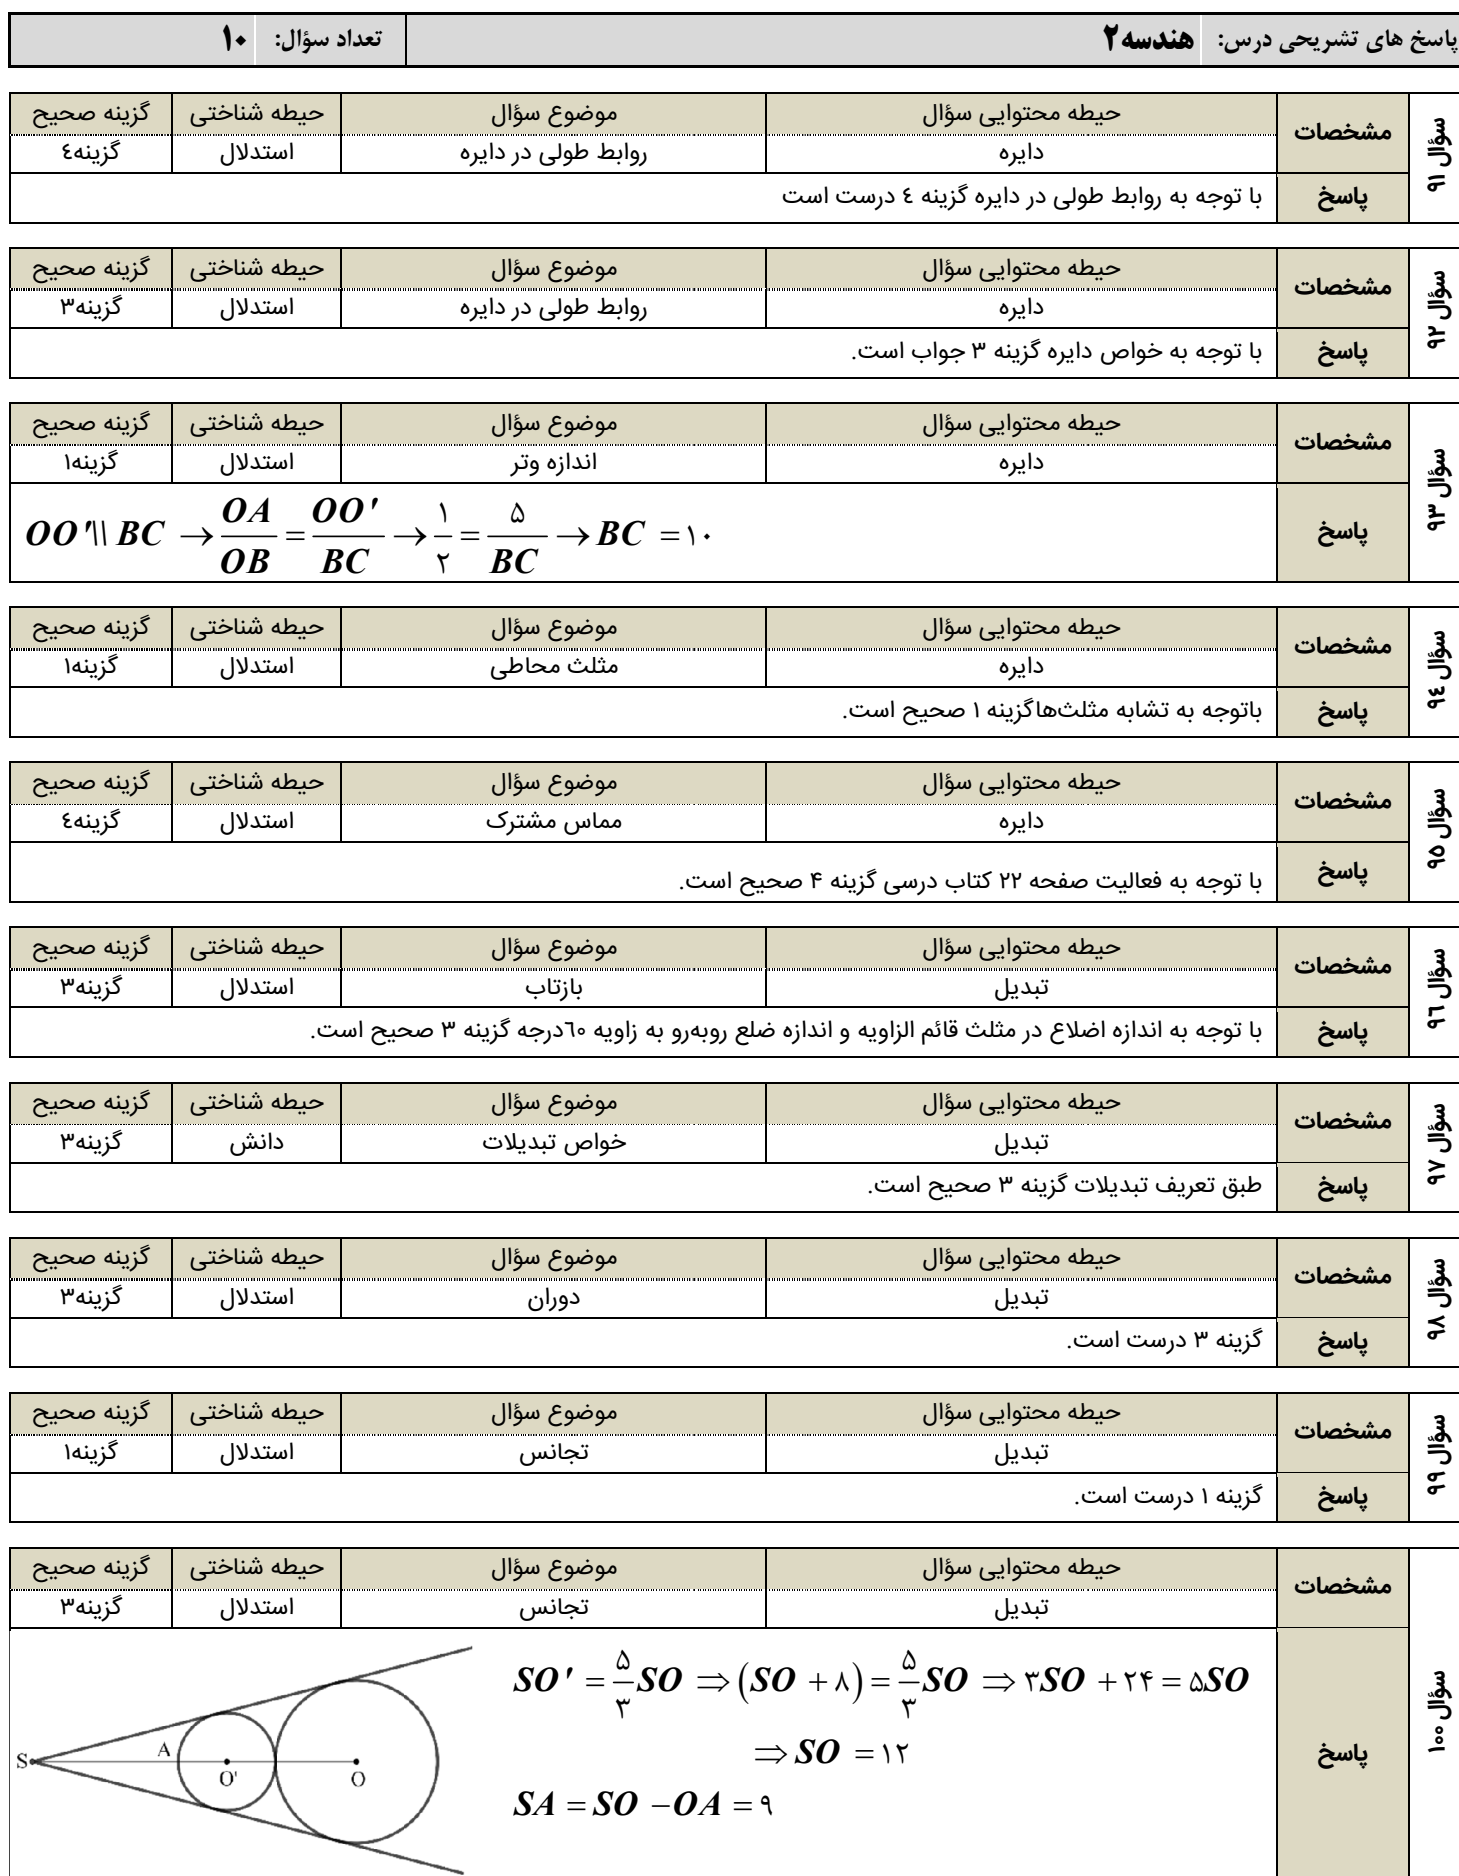 پاسخ های تشریحی درس: هندسه۲ تعداد سؤال: ۱۰
سؤال ۹۱
مشخصات
حیطه محتوایی سؤال موضوع سؤال حیطه شناختی گزینه صحیح
دایره روابط طولی در دایره استدلال گزینه٤
پاسخ با توجه به روابط طولی در دایره گزینه ٤ درست است
سؤال ۹۲
مشخصات
حیطه محتوایی سؤال موضوع سؤال حیطه شناختی گزینه صحیح
دایره روابط طولی در دایره استدلال گزینه۳
پاسخ با توجه به خواص دایره گزینه ۳ جواب است.
سؤال ۹۳
مشخصات
حیطه محتوایی سؤال موضوع سؤال حیطه شناختی گزینه صحیح
دایره اندازه وتر استدلال گزینه۱
پاسخ
OO'\\ BC → OA/OB = OO'/BC → ۱/۲ = ۵/BC → BC = ۱۰
سؤال ۹٤
مشخصات
حیطه محتوایی سؤال موضوع سؤال حیطه شناختی گزینه صحیح
دایره مثلث محاطی استدلال گزینه۱
پاسخ باتوجه به تشابه مثلث‌هاگزینه ۱ صحیح است.
سؤال ۹۵
مشخصات
حیطه محتوایی سؤال موضوع سؤال حیطه شناختی گزینه صحیح
دایره مماس مشترک استدلال گزینه٤
پاسخ با توجه به فعالیت صفحه ۲۲ کتاب درسی گزینه ۴ صحیح است.
سؤال ۹٦
مشخصات
حیطه محتوایی سؤال موضوع سؤال حیطه شناختی گزینه صحیح
تبدیل بازتاب استدلال گزینه۳
پاسخ با توجه به اندازه اضلاع در مثلث قائم الزاویه و اندازه ضلع روبه‌رو به زاویه ٦۰درجه گزینه ۳ صحیح است.
سؤال ۹۷
مشخصات
حیطه محتوایی سؤال موضوع سؤال حیطه شناختی گزینه صحیح
تبدیل خواص تبدیلات دانش گزینه۳
پاسخ طبق تعریف تبدیلات گزینه ۳ صحیح است.
سؤال ۹۸
مشخصات
حیطه محتوایی سؤال موضوع سؤال حیطه شناختی گزینه صحیح
تبدیل دوران استدلال گزینه۳
پاسخ گزینه ۳ درست است.
سؤال ۹۹
مشخصات
حیطه محتوایی سؤال موضوع سؤال حیطه شناختی گزینه صحیح
تبدیل تجانس استدلال گزینه۱
پاسخ گزینه ۱ درست است.
سؤال ۱۰۰
مشخصات
حیطه محتوایی سؤال موضوع سؤال حیطه شناختی گزینه صحیح
تبدیل تجانس استدلال گزینه۳
پاسخ
SO' = ۵/۳ SO ⇒ (SO + ۸) = ۵/۳ SO ⇒ ۳SO + ۲۴ = ۵SO
⇒ SO = ۱۲
SA = SO − OA = ۹
S A O' O